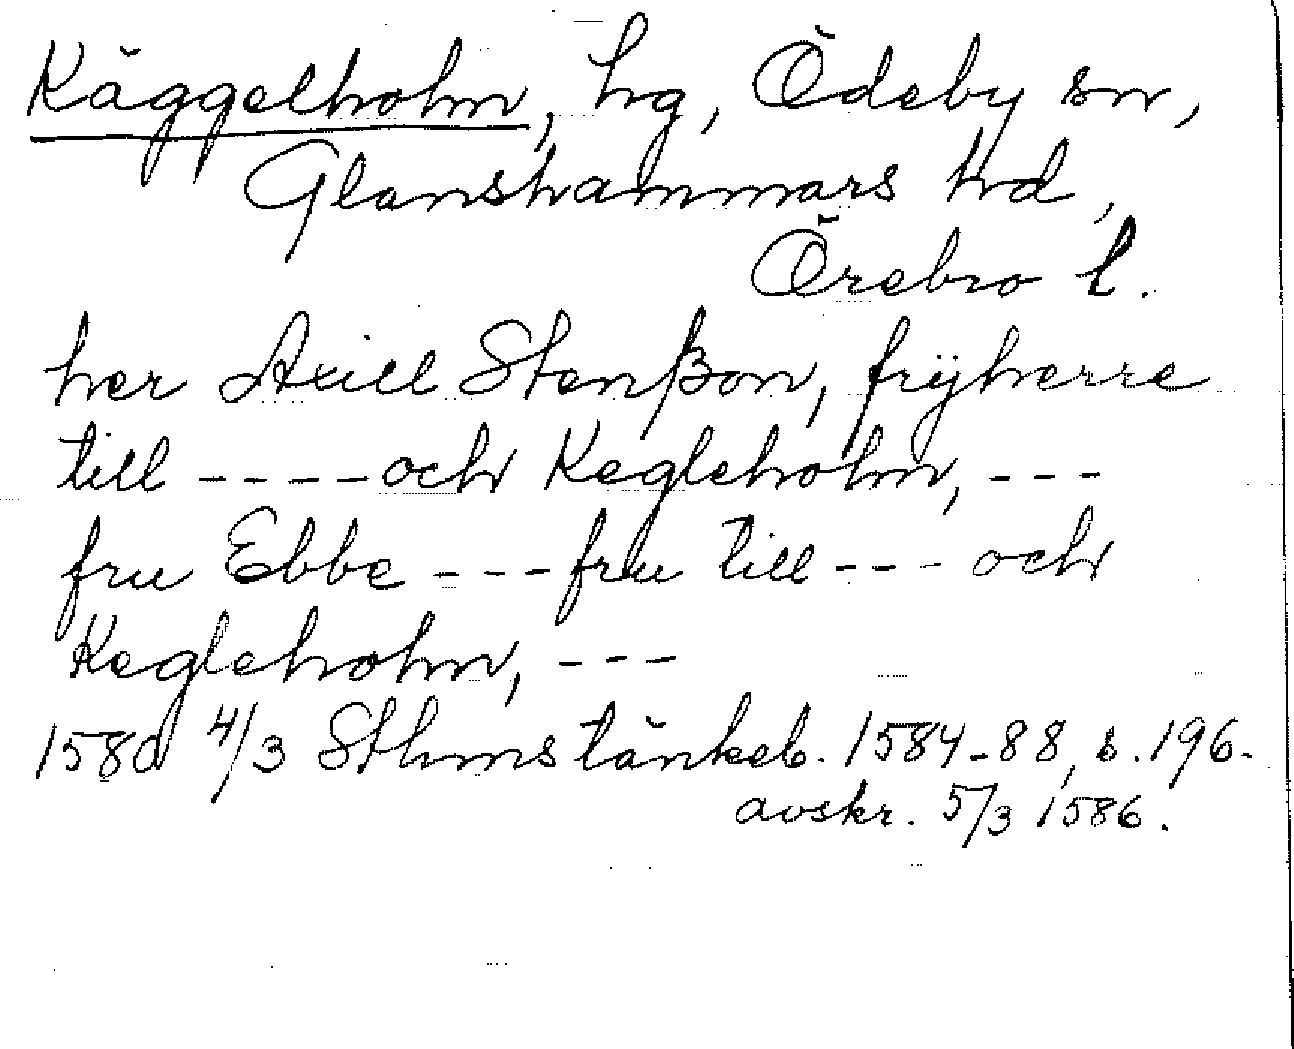 Käggelholm, hg, Ödeby sn,
Glanshammars hd,
Örebro l.
her Axell Stenßon, frÿherre
till ---- och Kegleholm, ---
fru Ebbe --- fru till --- och
Kegleholm, ---
1580 4/3 Sthms tänkeb. 1584-88, s. 196.
avskr. 5/3 1586.